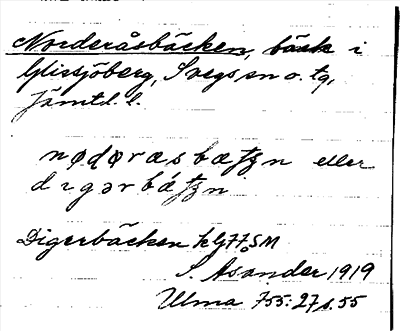 Norderåsbäcken, bäck i
Glissjöberg, Svegs sn o. tg,
Jämtl. l.
nødøræsbæʈʂn eller
digərbæʈʂn
Digerbäcken
S. Asander 1919
Ulma 755:27 s. 55